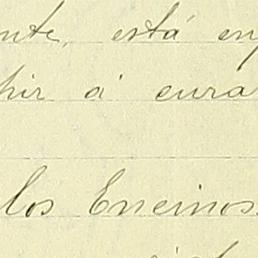 nte, está en
hir á cura
los Encinos.